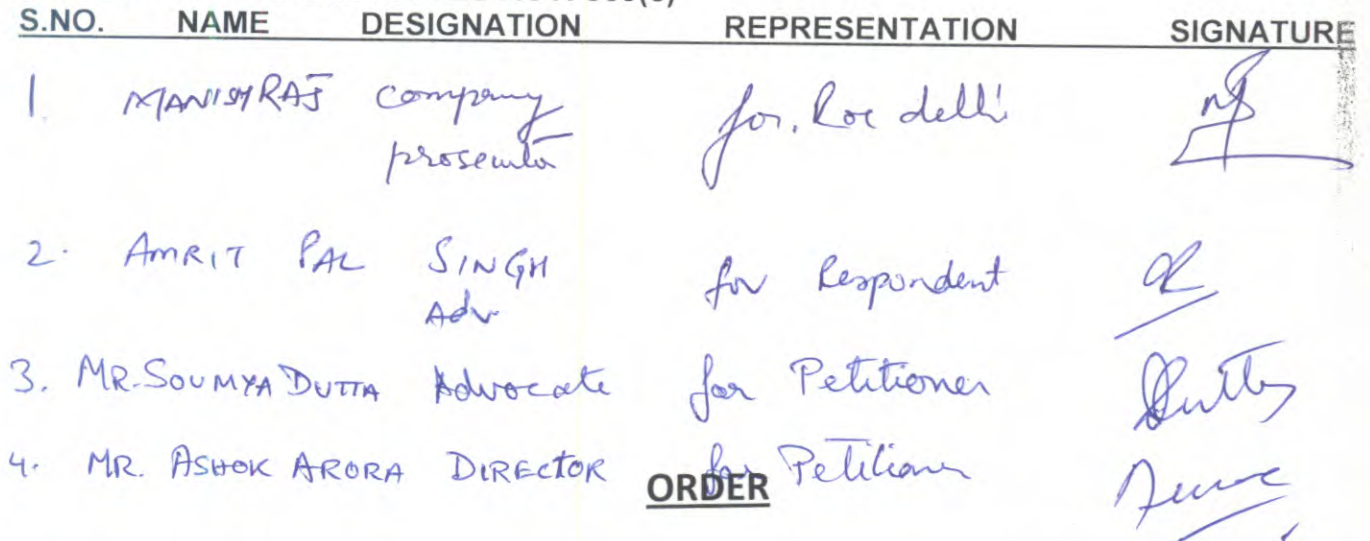 S.NO. NAME DESIGNATION REPRESENTATION SIGNATURE
1. MANISH RAJ company for. Roc delhi
prosecutor
2. AMRIT PAL SINGH for Respondent
Adv.
3. MR. SOUMYA DUTTA Advocate for Petitioner Dutta
4. MR. ASHOK ARORA DIRECTOR for Petitioner
ORDER